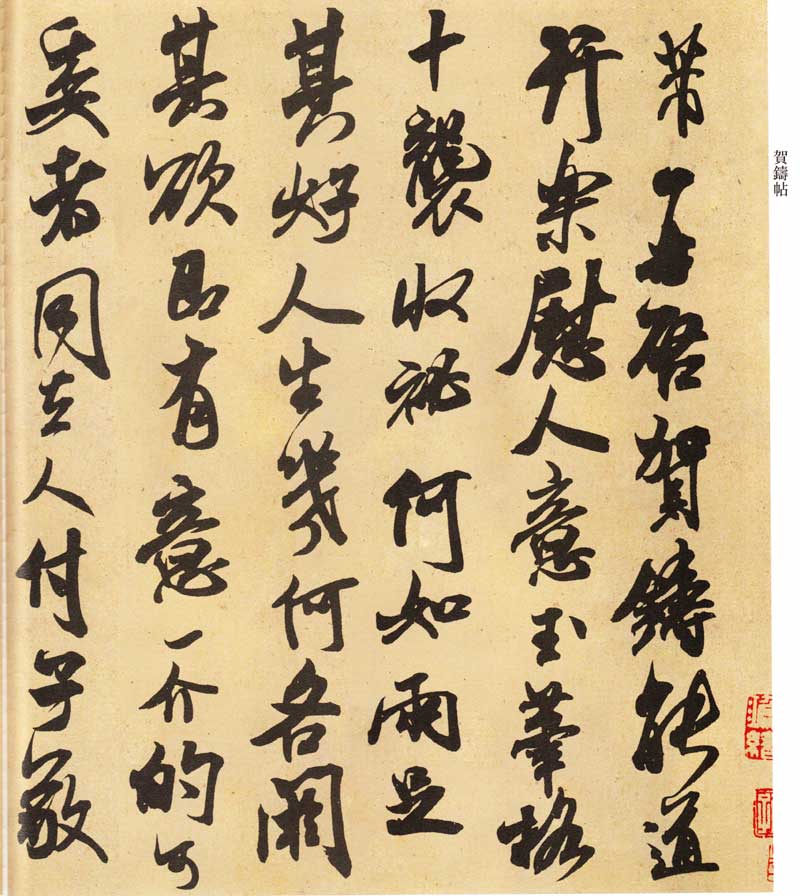 賀鑄帖
芾啓賀鑄能道
行樂慰人意玉筆格
十襲收祕何如兩足
其好人生幾何各闕
其欲即有意一介的可
委者同去人付子敬